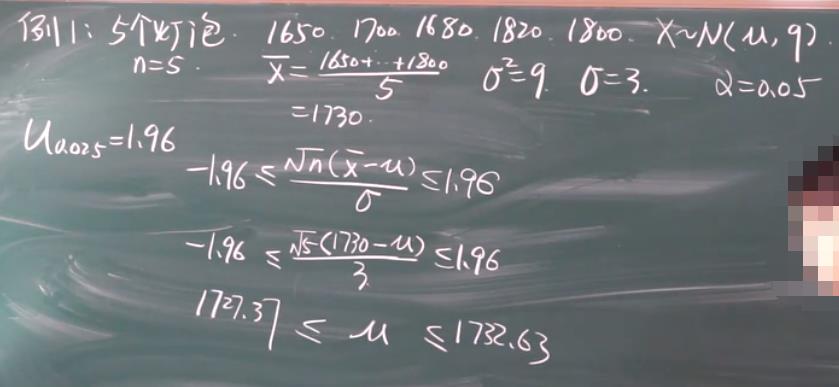 例1: 5个灯泡. 1650. 1700. 1680. 1820. 1800. X~N(μ, 9)
n=5. x̄ = (1650+…+1800)/5 σ²=9. σ=3. α=0.05
=1730.
U₀.₀₂₅=1.96
-1.96 ≤ √n(x̄-μ)/σ ≤ 1.96
-1.96 ≤ √5(1730-μ)/3 ≤ 1.96
1727.37 ≤ μ ≤ 1732.63